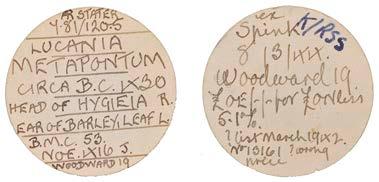 AR STATER
7.81/120.5
LUCANIA
METAPONTUM
CIRCA B.C. IX30
HEAD OF HYGIEIA R.
EAR OF BARLEY, LEAF L.
B.M.C. 53.
NOE. IX16 J.
WOODWARD 19
ex
Spink K/RSS
8 /3/IXIX.
Woodward 19.
for £on less
5.1%.
? list March 19X2.
No 13161 ? wrong